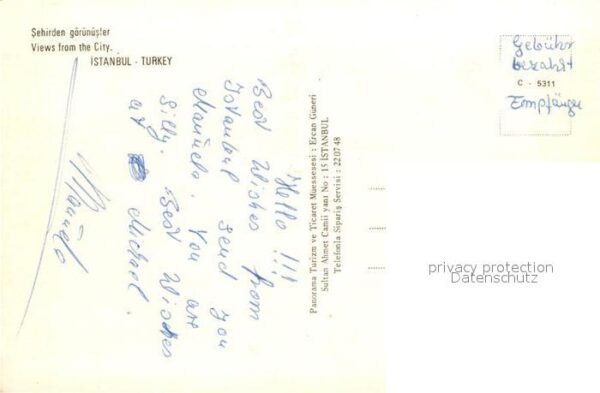 Şehirden görünüşler
Views from the City.
İSTANBUL - TURKEY
Hello !!!
Best Wishes from
Istanbul send you
Manuela. You are
silly. Best Wishes
at Michael.
Manuela
Panorama Turizm ve Ticaret Müessesesi : Ercan Güneri
Sultan Ahmet Camii yanı No : 15 İSTANBUL
Telefonla Sipariş Servisi : 22 07 48
Gebühr
bezahlt
C - 5311
Empfänger
privacy protection
Datenschutz